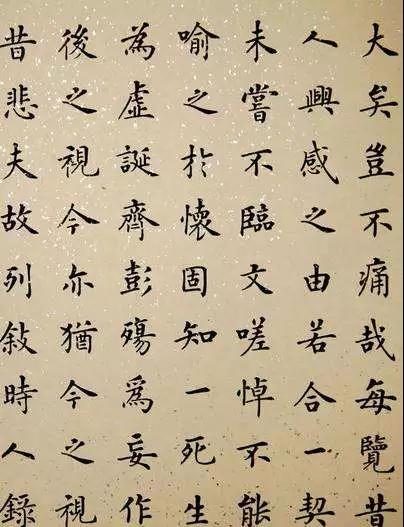 大矣豈不痛哉每覽昔
人興感之由若合一契
未嘗不臨文嗟悼不能
喻之於懷固知一死生
為虛誕齊彭殤爲妄作
後之視今亦猶今之視
昔悲夫故列敘時人錄